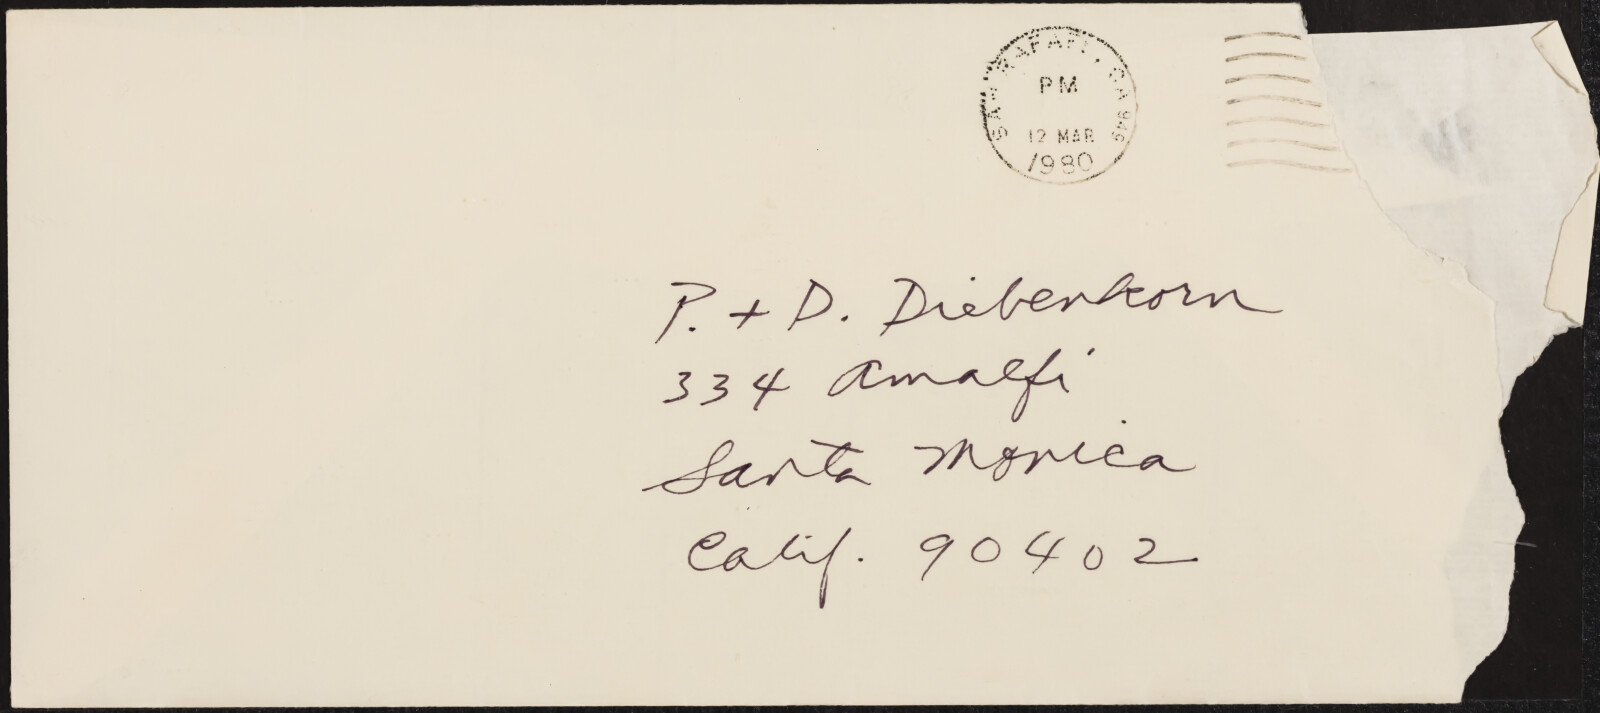 SAN RAFAEL, CA 949
PM
12 MAR
1980
P. + D. Diebenkorn
334 Amalfi
Santa Monica
Calif. 90402